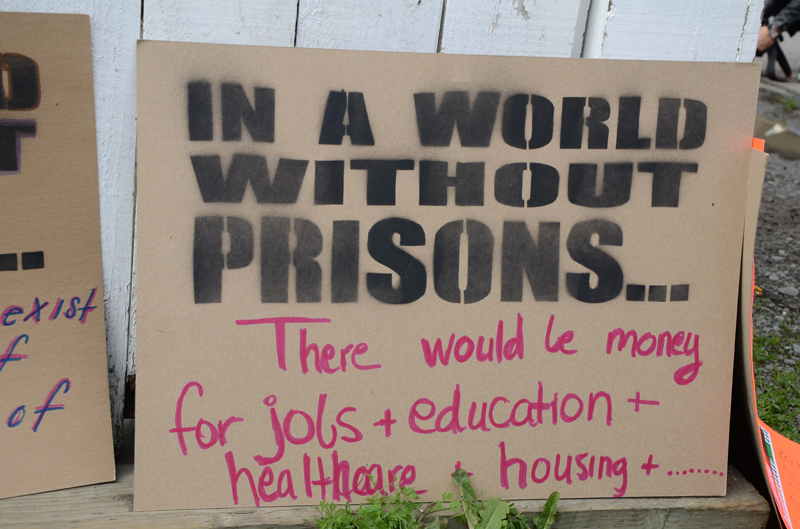 IN A WORLD
WITHOUT
PRISONS...
There would be money
for jobs + education +
healthcare + housing + ........
exist
of